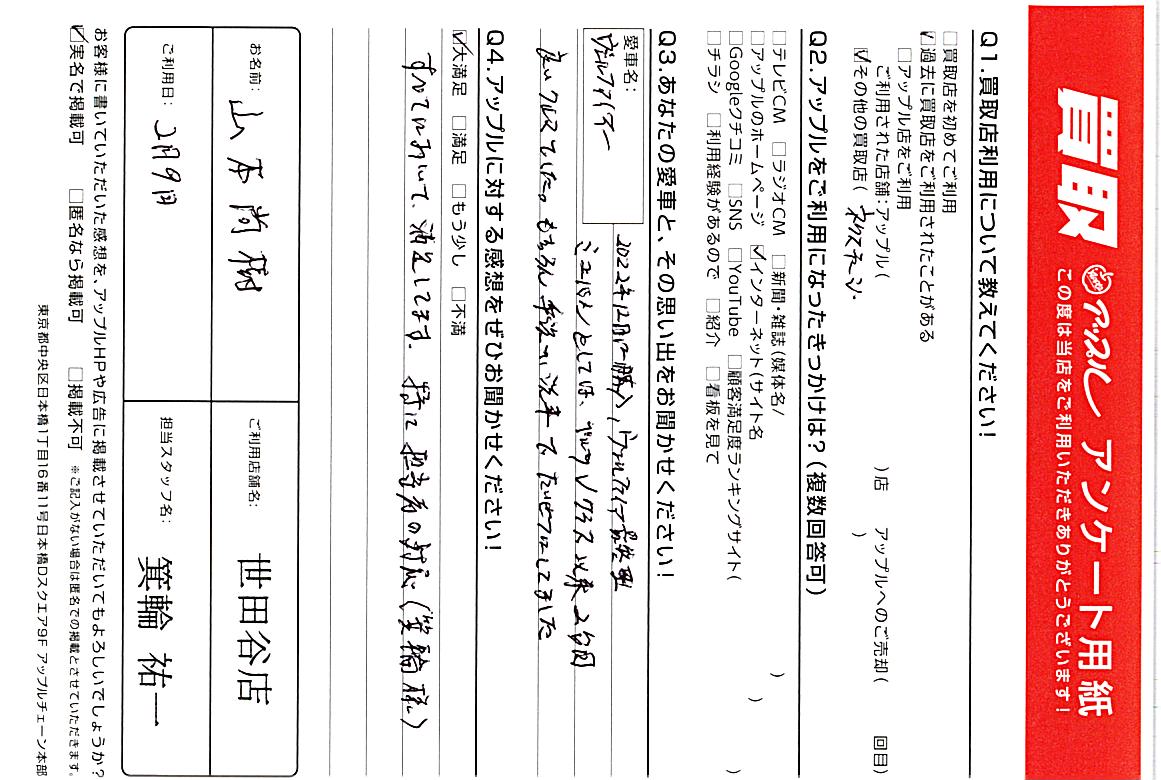 買取 アップル アンケート用紙
この度は当店をご利用いただきありがとうございます！
Q1.買取店利用について教えてください！
□買取店を初めてご利用
☑過去に買取店をご利用されたことがある
□アップル店をご利用
ご利用された店舗：アップル（　　　）店　アップルへのご売却（　　　回目）
☑その他の買取店（ネクステージ　　　）
Q2.アップルをご利用になったきっかけは？（複数回答可）
□テレビCM □ラジオCM □新聞・雑誌（媒体名/　　　）
□アップルのホームページ ☑インターネット（サイト名　　　）
□Googleクチコミ □SNS □YouTube □顧客満足度ランキングサイト（　　　）
□チラシ □利用経験があるので □紹介 □看板を見て
Q3.あなたの愛車と、その思い出をお聞かせください！
愛車名：
ヴェルファイアー
2022年12月に購入、ヴェルファイア最終型
ミニバンとしては、 以来2台目
良いクルマでした。もちろん 洗車で
Q4.アップルに対する感想をぜひお聞かせください！
☑大満足 □満足 □もう少し □不満
すべてにおいて、満足してます。特に担当者の対応（箕輪様）
お名前： 山本尚樹
ご利用店舗名： 世田谷店
ご利用日： 2月9日
担当スタッフ名： 箕輪 祐一
お客様に書いていただいた感想を、アップルHPや広告に掲載させていただいてもよろしいでしょうか？
☑実名で掲載可 □匿名なら掲載可 □掲載不可 ※ご記入がない場合は匿名での掲載とさせていただきます。
東京都中央区日本橋1丁目16番11号日本橋Dスクエア9F アップルチェーン本部